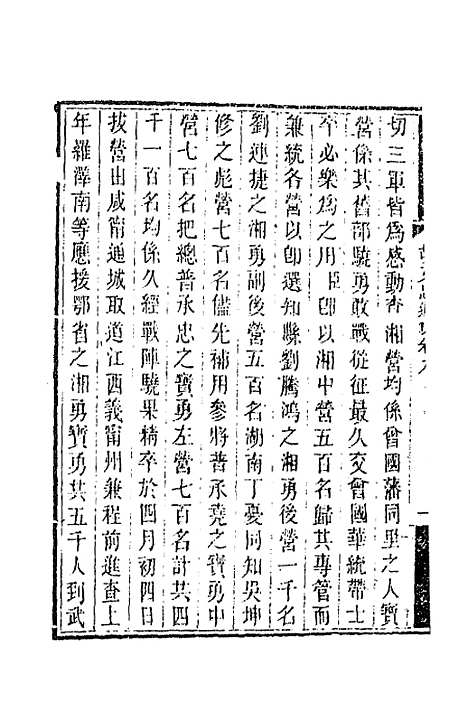 切三軍皆爲感動查湘營均係曾國藩同里之人寶
營係其舊部驍勇敢戰從征最久交曾國華統帶士
卒必樂爲之用臣卽以湘中營五百名歸其專管而
兼統各營以卽選知縣劉騰鴻之湘勇後營一千名
劉連捷之湘勇副後營五百名湖南丁憂同知吳坤
修之彪營七百名儘先補用參將普承堯之寶勇中
營七百名把總普承忠之寶勇左營七百名計共四
千一百名均係久經戰陣驍果精卒於四月初四日
拔營由咸甯通城取道江西義甯州兼程前進查上
年羅澤南等應援鄂省之湘勇寶勇共五千人到武